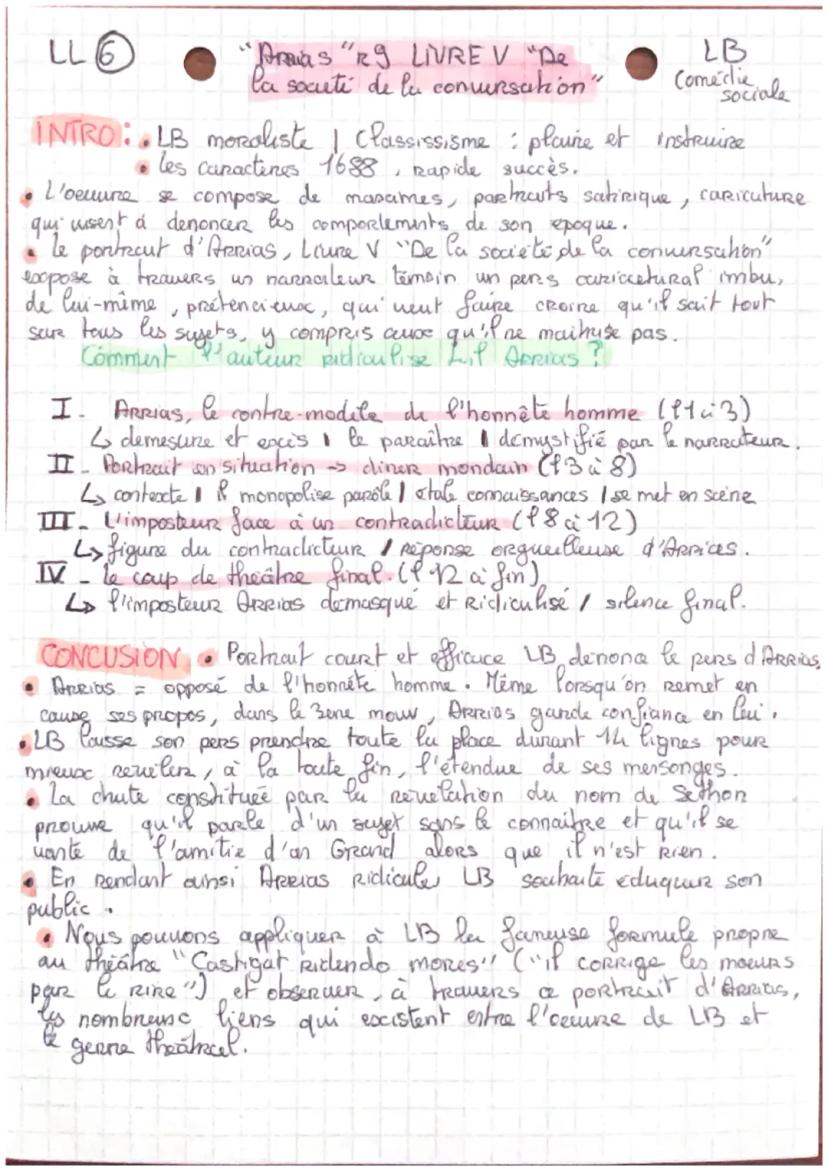 LL 6
"Arrias" R9 LIVRE V "De
la société de la conversation"
LB
Comédie
sociale
INTRO : • LB moraliste | Classissisme : plaire et instruire
• les caractères 1688, rapide succès.
• L'oeuvre se compose de maxames, portraits satirique, caricature
qui visent à denoncer les comportements de son epoque.
• le portrait d'Arrias, Livre V "De la société de la conversation"
expose à travers un narrateur témoin un pers caricatural imbu,
de lui-même, prétencieux, qui veut faire croire qu'il sait tout
sur tous les sujets, y compris ceux qu'il ne maitrise pas.
Comment l'auteur ridiculise t-il Arrias ?
I - Arrias, le contre-modèle de l'honnête homme (l1 à 3)
↳ demesure et excès | le paraître | démystifié par le narrateur.
II - Portrait en situation → diner mondain (l3 à 8)
↳ contexte | il monopolise parole | étale connaissances | se met en scène
III - L'imposteur face à un contradicteur (l8 à 12)
↳ figure du contradicteur / réponse orgueilleuse d'Arrias.
IV - le coup de théâtre final. (l12 à fin)
↳ l'imposteur Arrias démasqué et Ridiculisé / silence final.
CONCUSION • Portrait court et efficace LB denonce le pers d'Arrias,
• Arrias = opposé de l'honnête homme. Même lorsqu'on remet en
cause ses propos, dans le 3eme mouv, Arrias garde confiance en lui.
• LB laisse son pers prendre toute la place durant 14 lignes pour
mieux révéler, à la toute fin, l'étendue de ses mensonges.
• La chute constituée par la révélation du nom de Séthon
prouve qu'il parle d'un sujet sans le connaître et qu'il se
vante de l'amitié d'un Grand alors que il n'est rien.
• En rendant ainsi Arrias ridicule, LB souhaite eduquer son
public.
• Nous pouvons appliquer à LB la fameuse formule propre
au théâtre "Castigat ridendo mores" ("il corrige les moeurs
par le rire") et observer, à travers ce portrait d'Arrias,
les nombreux liens qui existent entre l'oeuvre de LB et
le genre théâtral.